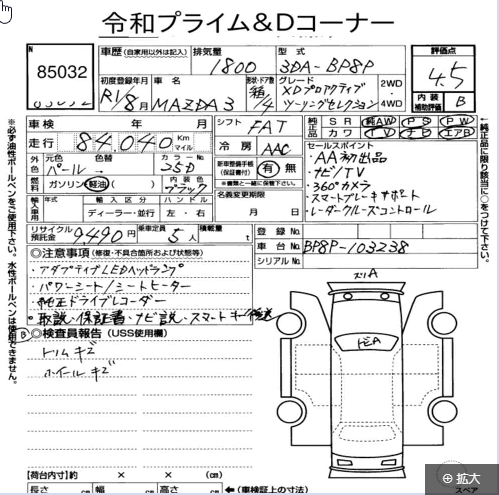 令和プライム&Dコーナー
N
85032
車歴 (自家用以外は記入)
排気量
1800
型式
3DA-BP8P
評価点
4.5
内装補助評価
B
初度登録年月
R1/8月
車名
MAZDA3
形状・ドア数
箱/4
グレード
XDプロアクティブ
ツーリングセレクション
2WD
4WD
車検 年 月
シフト
FAT
純正品
SR 純AW PS PW
カワ TV ナビ エアB
走行
84,040
Km
マイル
冷房
AAC
セールスポイント
・AA初出品
・ナビ/TV
・360°カメラ
・スマートブレーキサポート
・レーダークルーズコントロール
外色
元色
パール
色替
カラーNo
25D
新車整備手帳
(保証書付)
有・無
※書類と一緒に保管下さい。
燃料
ガソリン・軽油・( )
内装色
ブラック
名義変更期限
月 日
輸入車
年式
輸入区分
ハンドル
ディーラー・並行
左・右
リサイクル預託金
9490円
乗車定員
5人
積載量
t
登録No.
車台No.
BP8P-103238
シリアルNo.
◎注意事項 (修復・不具合箇所および状態等)
・アダプティブLEDヘッドランプ
・パワーシート/シートヒーター
・純正ドライブレコーダー
・取説・保証書・ナビ説・スマートキー後送
B
◎検査員報告 (USS使用欄)
トリムキズ
ホイールキズ
スリA
トビA
【荷台内寸】約 × × (cm)
長さ cm 幅 cm 高さ cm ←(車検証上の寸法)
スペア
拡大
※必ず油性ボールペンをご使用下さい。水性ボールペンは使用できません。
純正品に限り該当に○をつけて下さい。